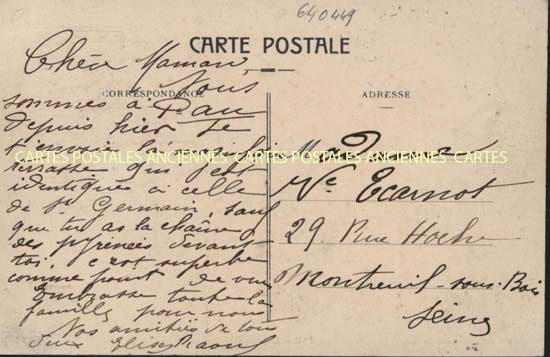 640449
CARTE POSTALE
Chère Maman,
Nous
CORRESPONDANCE
sommes à Pau
depuis hier. Je
t'envoie la
CARTES POSTALES ANCIENNES CARTES POSTALES ANCIENNES CARTES
terrasse qui est
identique à celle
de St Germain, sauf
que tu as la chaîne
des pyrénées devant
toi, c'est superbe
comme point de vue
Embrasse toute la
famille pour nous
Nos amitiés de tous
deux Elise Raoul
ADRESSE
Madame
Vve Ecarnot
29 Rue Hoche
Montreuil-sous-Bois
Seine